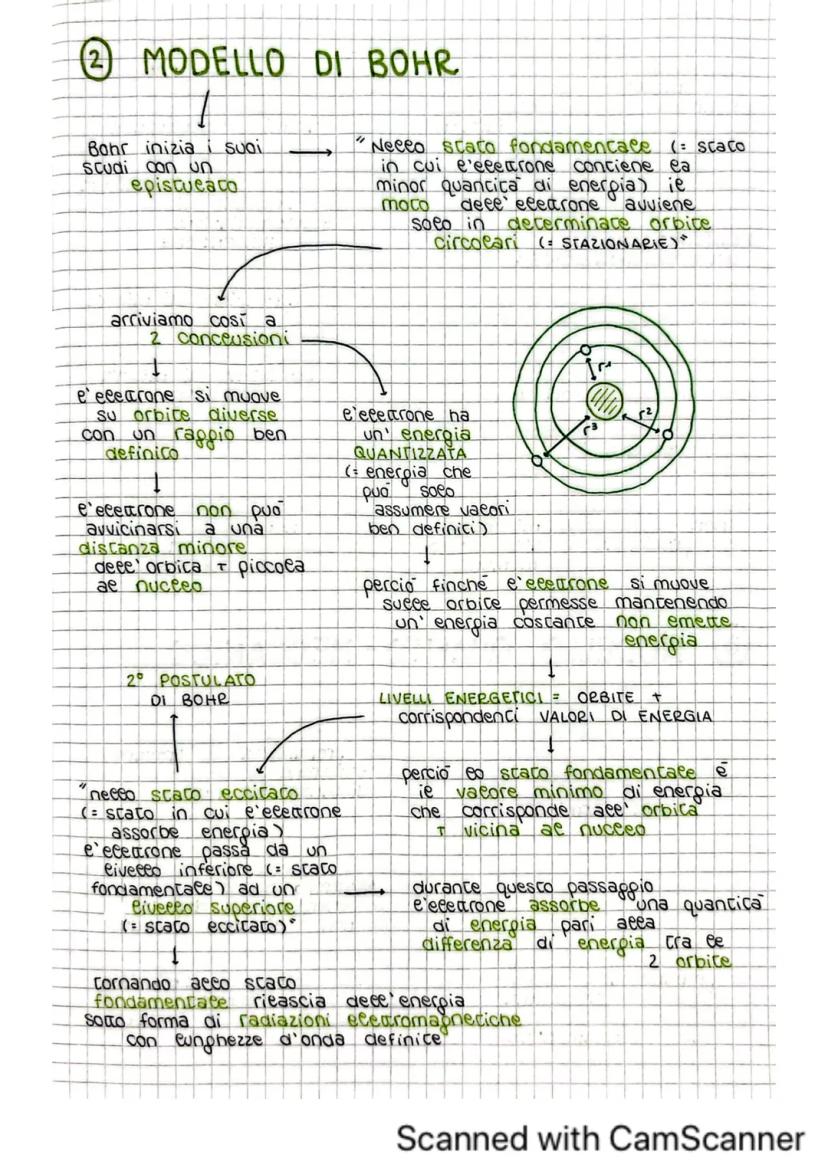 2 MODELLO DI BOHR
Bohr inizia i suoi
studi con un
epistolato
"Nello stato fondamentale (= stato
in cui l'elettrone contiene la
minor quantità di energia) il
moto dell'elettrone avviene
solo in determinate orbite
circolari (= STAZIONARIE)"
arriviamo così a
2 conclusioni
l'elettrone si muove
su orbite diverse
con un raggio ben
definito
l'elettrone non può
avvicinarsi a una
distanza minore
dell'orbita + piccola
al nucleo
l'elettrone ha
un'energia
QUANTIZZATA
(= energia che
può solo
assumere valori
ben definiti)
r1
r2
r3
perciò finché l'elettrone si muove
sulle orbite permesse mantenendo
un'energia costante non emette
energia
LIVELLI ENERGETICI = ORBITE +
corrispondenti VALORI DI ENERGIA
perciò lo stato fondamentale è
il valore minimo di energia
che corrisponde all'orbita
+ vicina al nucleo
2° POSTULATO
DI BOHR
"nello stato eccitato
(= stato in cui l'elettrone
assorbe energia)
l'elettrone passa da un
livello inferiore (= stato
fondamentale) ad un
livello superiore
(= stato eccitato)"
durante questo passaggio
l'elettrone assorbe una quantità
di energia pari alla
differenza di energia tra le
2 orbite
tornando allo stato
fondamentale rilascia dell'energia
sotto forma di radiazioni elettromagnetiche
con lunghezze d'onda definite
Scanned with CamScanner